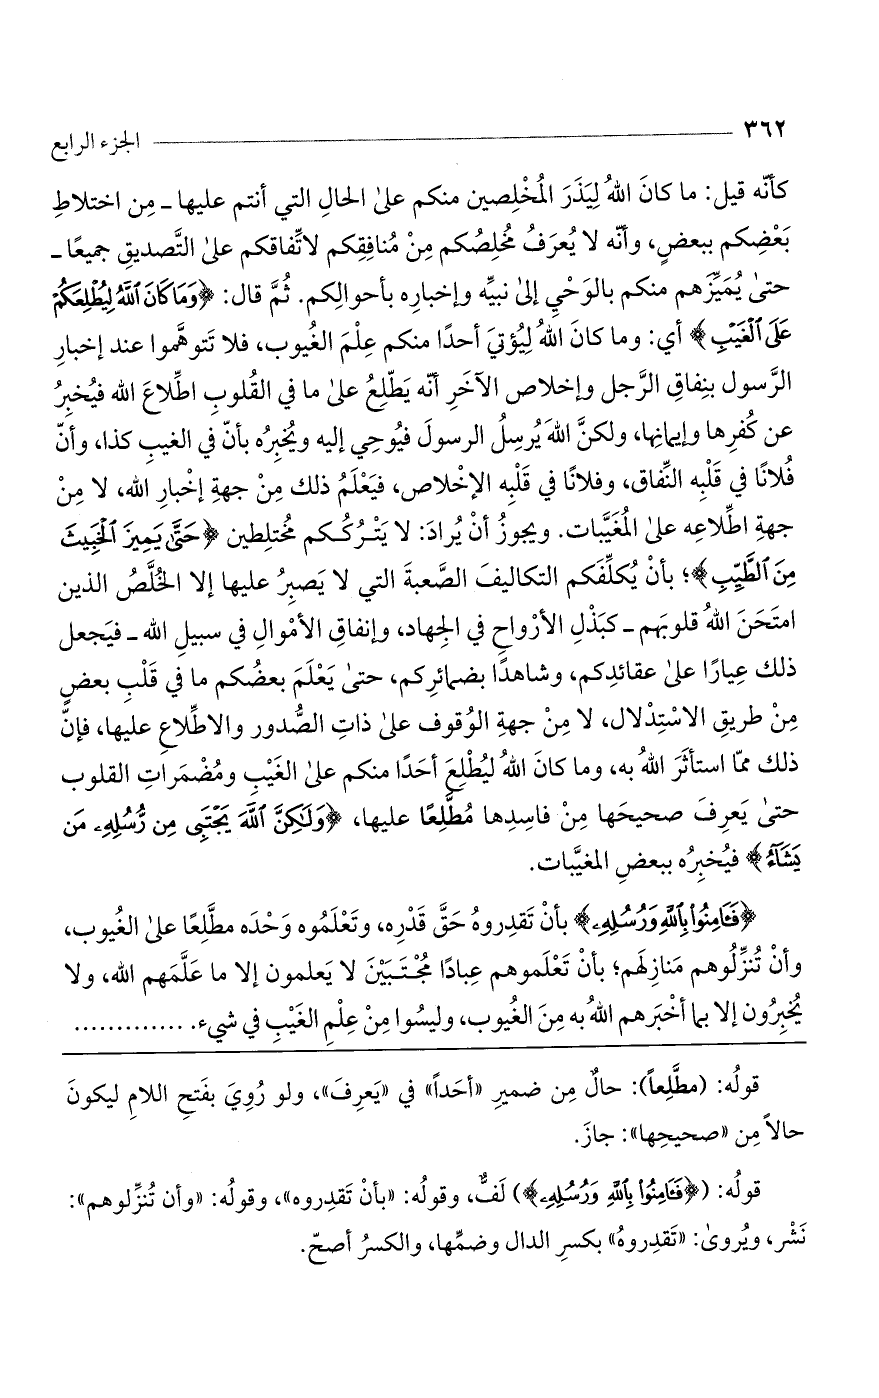 ٣٦٢ الجزء الرابع
كأنّه قيل: ما كانَ اللهُ لِيَذَرَ المُخْلِصين منكم علىٰ الحالِ التي أنتم عليها ـ مِن اختلاطِ
بَعْضِكم ببعضٍ، وأنّه لا يُعرَفُ مُخلِصُكم مِنْ مُنافِقِكم لاتِّفاقكم علىٰ التَّصديقِ جميعًا ـ
حتىٰ يُمَيِّزَهم منكم بالوَحْيِ إلىٰ نبيِّه وإخبارِه بأحوالِكم. ثُمَّ قال: ﴿وَمَا كَانَ ٱللَّهُ لِيُطْلِعَكُمْ
عَلَى ٱلْغَيْبِ﴾ أي: وما كانَ اللهُ لِيُؤتيَ أحدًا منكم عِلْمَ الغيوبِ، فلا تَتوهَّموا عند إخبارِ
الرَّسول بنِفاقِ الرَّجل وإخلاص الآخَرِ أنّه يَطّلِعُ علىٰ ما في القُلوبِ اطِّلاعَ الله فيُخبِرُ
عن كُفرِها وإيمانِها، ولكنَّ اللهَ يُرسِلُ الرسولَ فيُوحِي إليه ويُخبِرُه بأنّ في الغيبِ كذا، وأنّ
فُلانًا في قَلْبِه النِّفاق، وفلانًا في قَلْبِه الإخْلاص، فيَعْلَمُ ذلك مِنْ جهةِ إخْبارِ الله، لا مِنْ
جهةِ اطِّلاعِه علىٰ المُغَيَّبات. ويجوزُ أنْ يُرادَ: لا يَتْرُكُكم مُختلِطين ﴿حَتَّىٰ يَمِيزَ ٱلْخَبِيثَ
مِنَ ٱلطَّيِّبِ﴾؛ بأنْ يُكلِّفَكم التكاليفَ الصَّعبةَ التي لا يَصبِرُ عليها إلا الخُلَّصُ الذين
امتَحَنَ اللهُ قلوبَهم ـ كبَذْلِ الأرْواحِ في الجِهاد، وإنفاقِ الأمْوالِ في سبيلِ الله ـ فيَجعل
ذلك عِيارًا علىٰ عقائدِكم، وشاهدًا بضمائرِكم، حتىٰ يَعْلَمَ بعضُكم ما في قَلْبِ بعضٍ
مِنْ طريقِ الاسْتِدْلال، لا مِنْ جهةِ الوُقوف علىٰ ذاتِ الصُّدور والاطِّلاعِ عليها، فإنَّ
ذلك ممّا استأثَرَ اللهُ به، وما كانَ اللهُ ليُطْلِعَ أحَدًا منكم علىٰ الغَيْبِ ومُضْمَراتِ القلوب
حتىٰ يَعرِفَ صحيحَها مِنْ فاسِدِها مُطَّلِعًا عليها، ﴿وَلَٰكِنَّ ٱللَّهَ يَجْتَبِى مِن رُّسُلِهِۦ مَن
يَشَآءُ﴾ فيُخبِرُه ببعضِ المغيَّبات.
﴿فَـَٔامِنُوا۟ بِٱللَّهِ وَرُسُلِهِۦ﴾ بأنْ تَقدِروهُ حَقَّ قَدْرِه، وتَعْلَمُوه وَحْدَه مطَّلِعًا علىٰ الغيُوب،
وأنْ تُنزِّلُوهم مَنازِلَهم؛ بأنْ تَعْلَموهم عِبادًا مُجْتَبَيْنَ لا يَعلمون إلا ما عَلَّمَهم الله، ولا
يُخبِرُون إلا بما أخْبَرَهم اللهُ به مِنَ الغُيوب، وليسُوا مِنْ عِلْمِ الغَيْبِ في شيء. .............
قولُه: (مطَّلِعاً): حالٌ مِن ضميرِ «أحَداً» في «يَعرِفَ»، ولو رُوِيَ بفَتحِ اللامِ ليكونَ
حالاً مِن «صحيحِها»: جازَ.
قولُه: (﴿فَـَٔامِنُوا۟ بِٱللَّهِ وَرُسُلِهِۦ﴾) لَفٌّ، وقولُه: «بأنْ تَقدِروه»، وقولُه: «وأن تُنزِّلوهم»:
نَشْر، ويُروىٰ: «تَقدِروهُ» بكسرِ الدال وضمِّها، والكسرُ أصحّ.